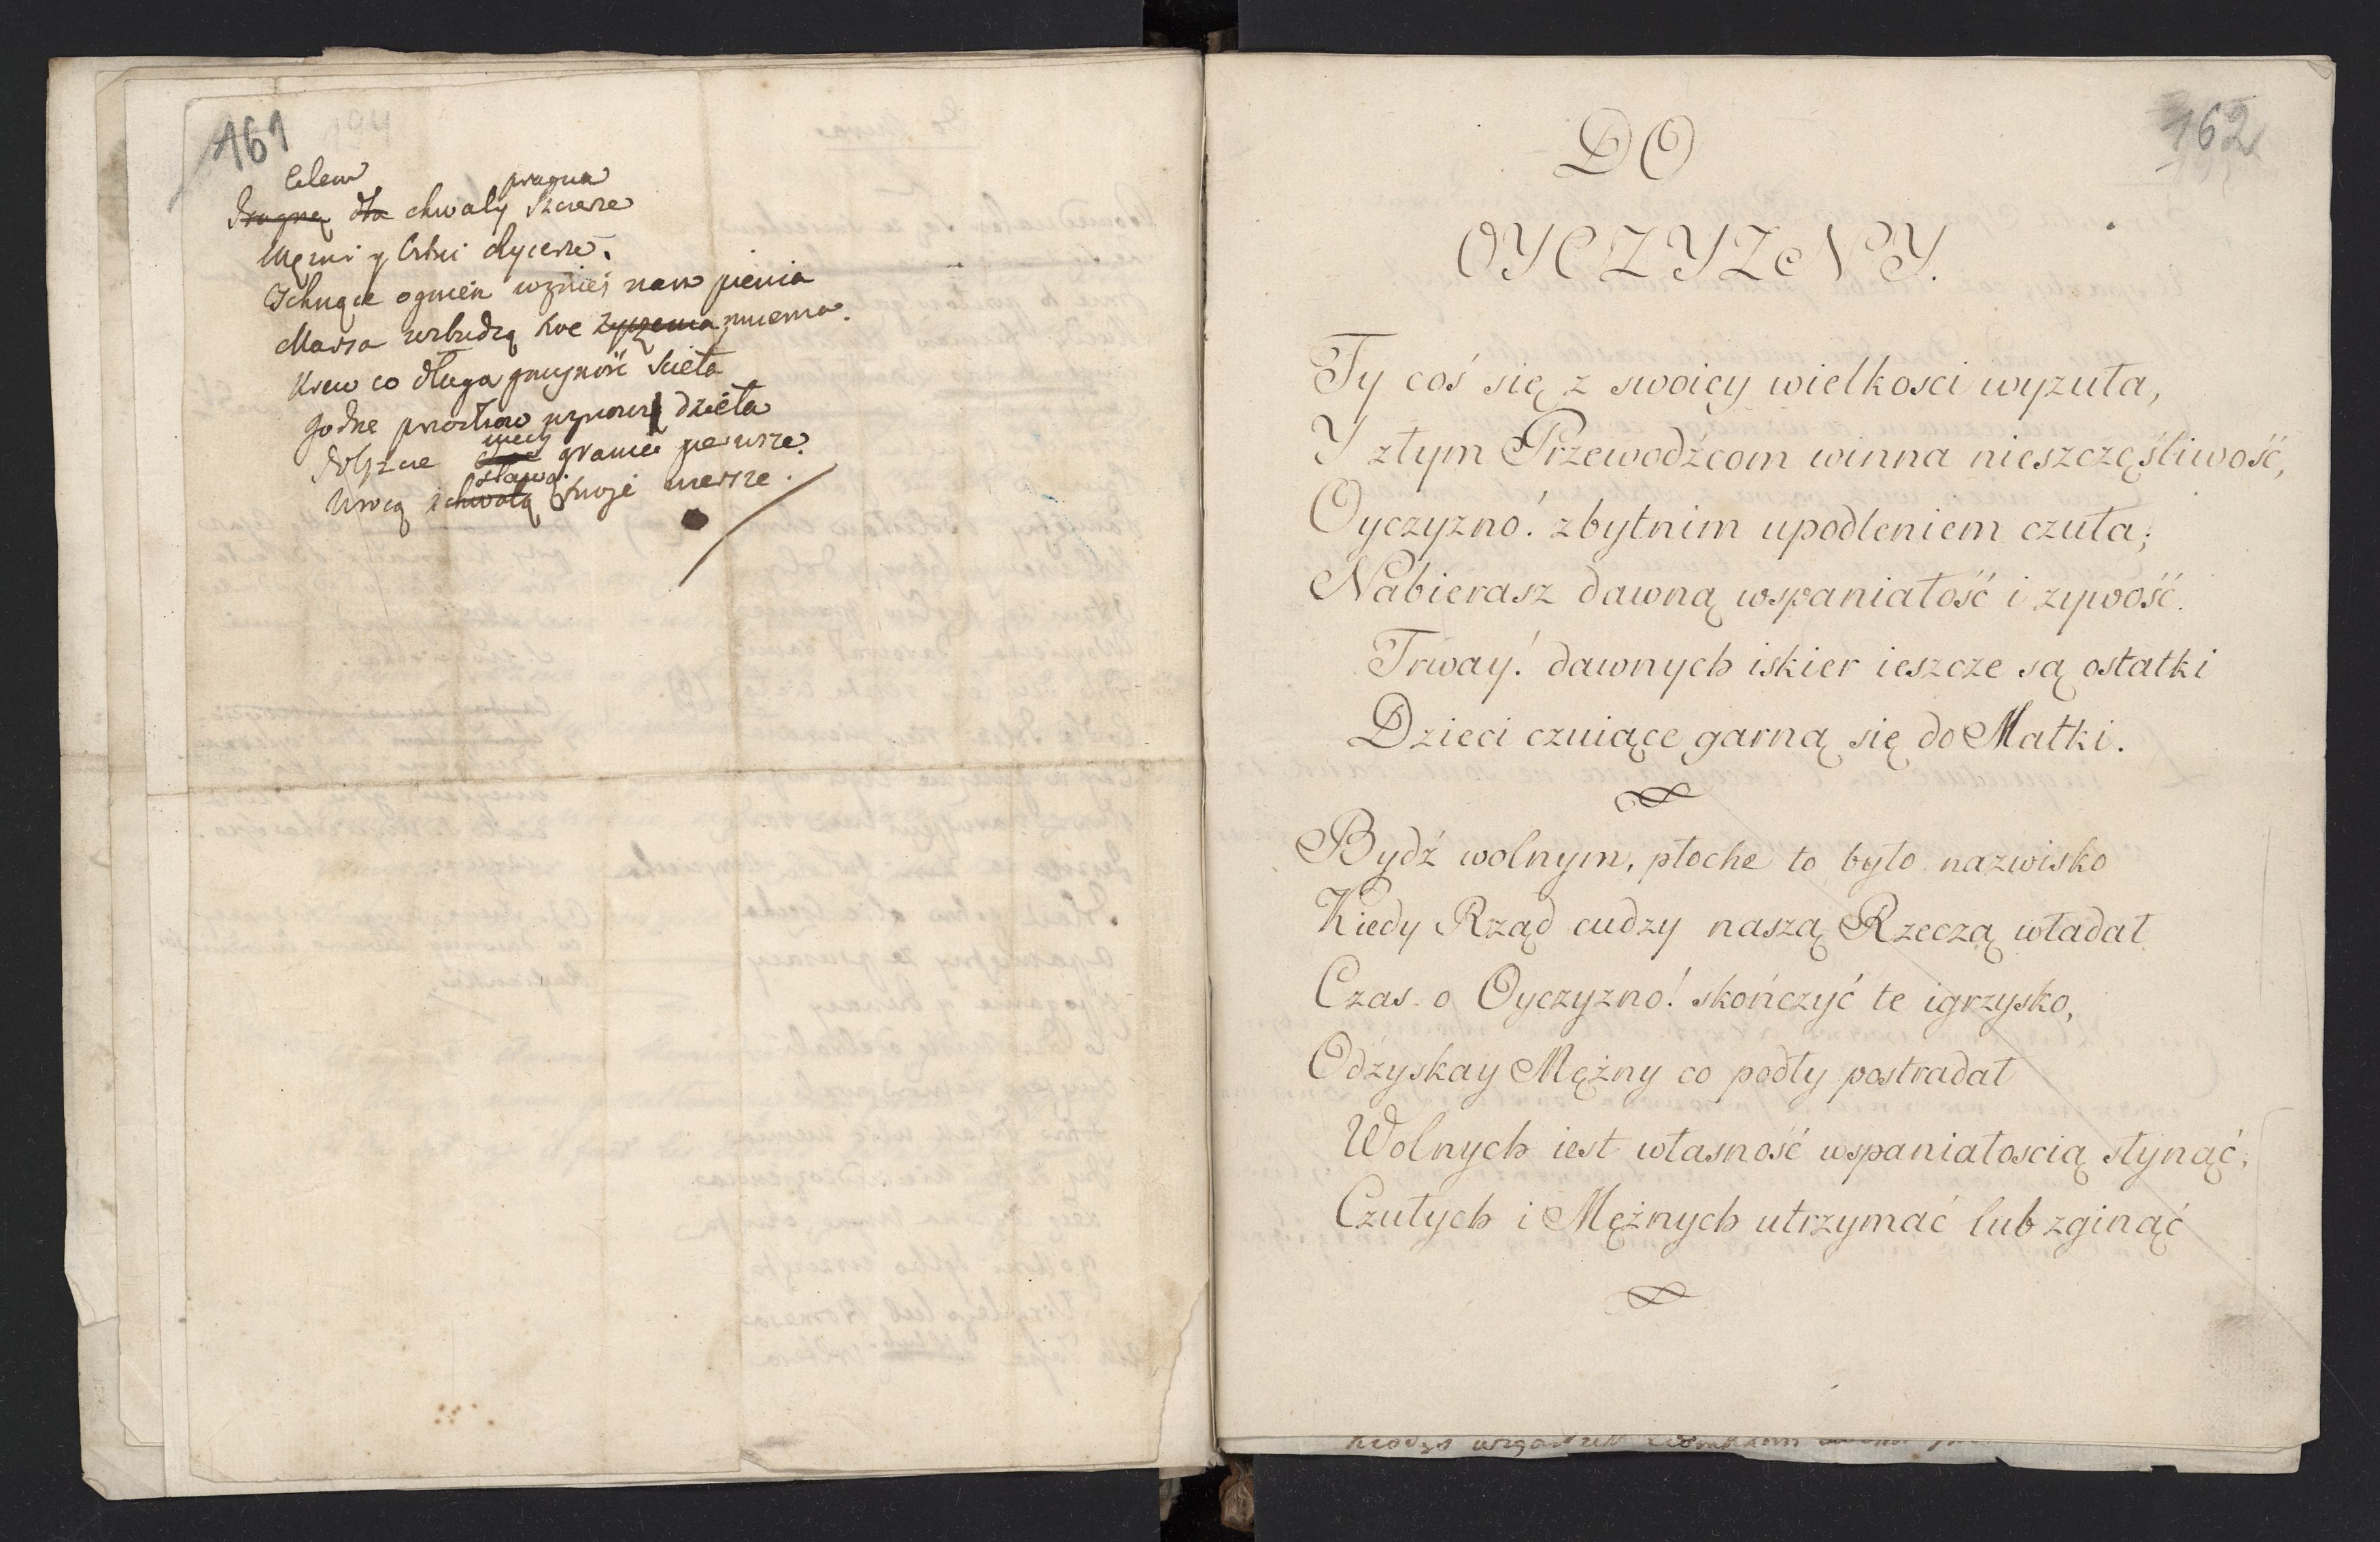 161
Celem pragna
Pragną dla chwały szczerze
Mężni y Cni Rycerze.
Tchnące ogniem wznieś nam pienia
Marsa wzbudzą twe życzenia mniema.
Krew co długa gnuśnośćścieła
Godne przodków wznowi dzieła
niech granice pierwsze
sława
Wrócą i chwałą twoje wiersze.
162
DO
OYCZYZNY.
Ty coś się z swoiey wielkosci wyzuła,
Y złym Przewodźcom winna nieszczęśliwość,
Oyczyzno! zbytnim upodleniem czuła;
Nabierasz dawną wspaniałość i zywość.
Trway! dawnych iskier ieszcze są ostatki
Dzieci czuiące garną się do Matki.
Bydź wolnym, płoche to było nazwisko
Kiedy Rząd cudzy naszą Rzeczą władał
Czas o Oyczyzno! skończyć te igrzysko,
Odzyskay Mężny co podły postradał
Wolnych iest własność wspaniałoscią słynąć;
Czułych i Mężnych utrzymać lub zginąć